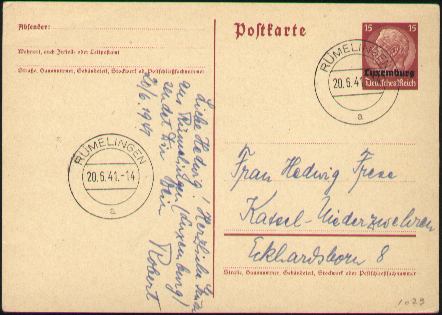 Absender:
Wohnort, auch Zustell- oder Leitpostamt
Straße, Hausnummer, Gebäudeteil, Stockwerk od. Postschließfachnummer
Postkarte
15 15
Luxemburg
Deutsches Reich
RÜMELINGEN
20.6.41
a
RÜMELINGEN
20.6.41.-14
a
Liebe Hedwig! Herzliche
aus Rümelingen (Luxemburg)
sendet Dir Dein
20/6.1941 Robert
Frau Hedwig Frese
Kassel-Niederzwehren
Eckhardsborn 8
Straße, Hausnummer, Gebäudeteil, Stockwerk oder Postschließfachnummer
1029